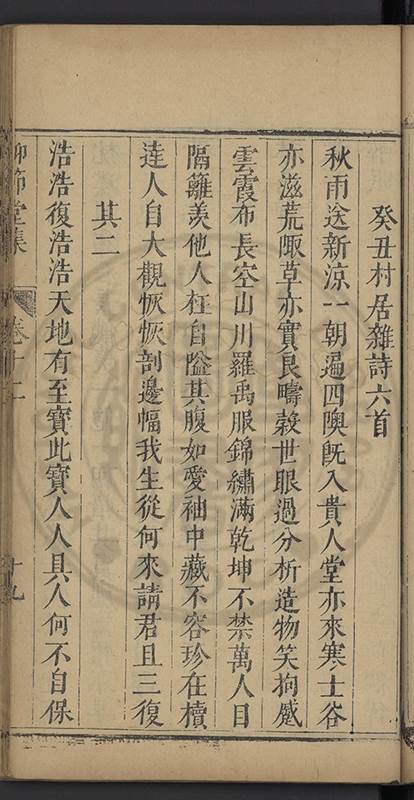 癸丑村居雜詩六首
秋雨送新涼一朝遍四隩旣入貴人堂亦來寒士谷
亦滋荒畈草亦實良疇穀世眼過分析造物笑拘蹙
雲霞布長空山川羅禹服錦繡滿乾坤不禁萬人目
隔籬羨他人枉自隘其腹如愛袖中藏不容珍在櫝
達人自大觀恢恢剖邊幅我生從何來請君且三復
其二
浩浩復浩浩天地有至寶此寶人人具人何不自保
節堂集
卷十二
十九